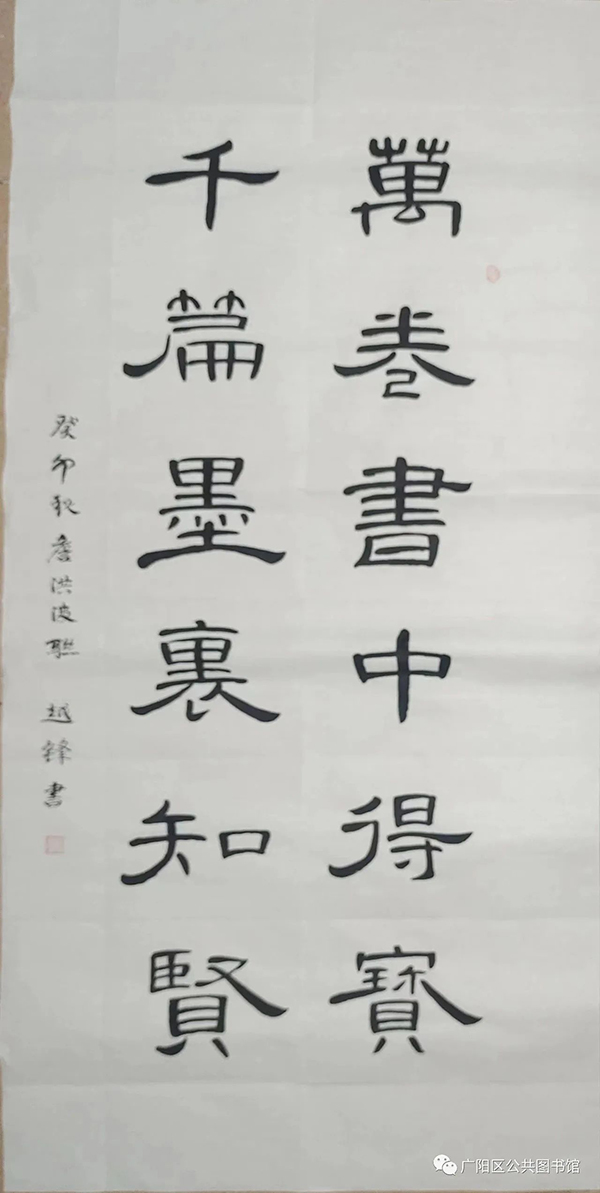 萬卷書中得寶
千篇墨裏知賢
癸卯秋詹洪波聯 越鋒書
广阳区公共图书馆